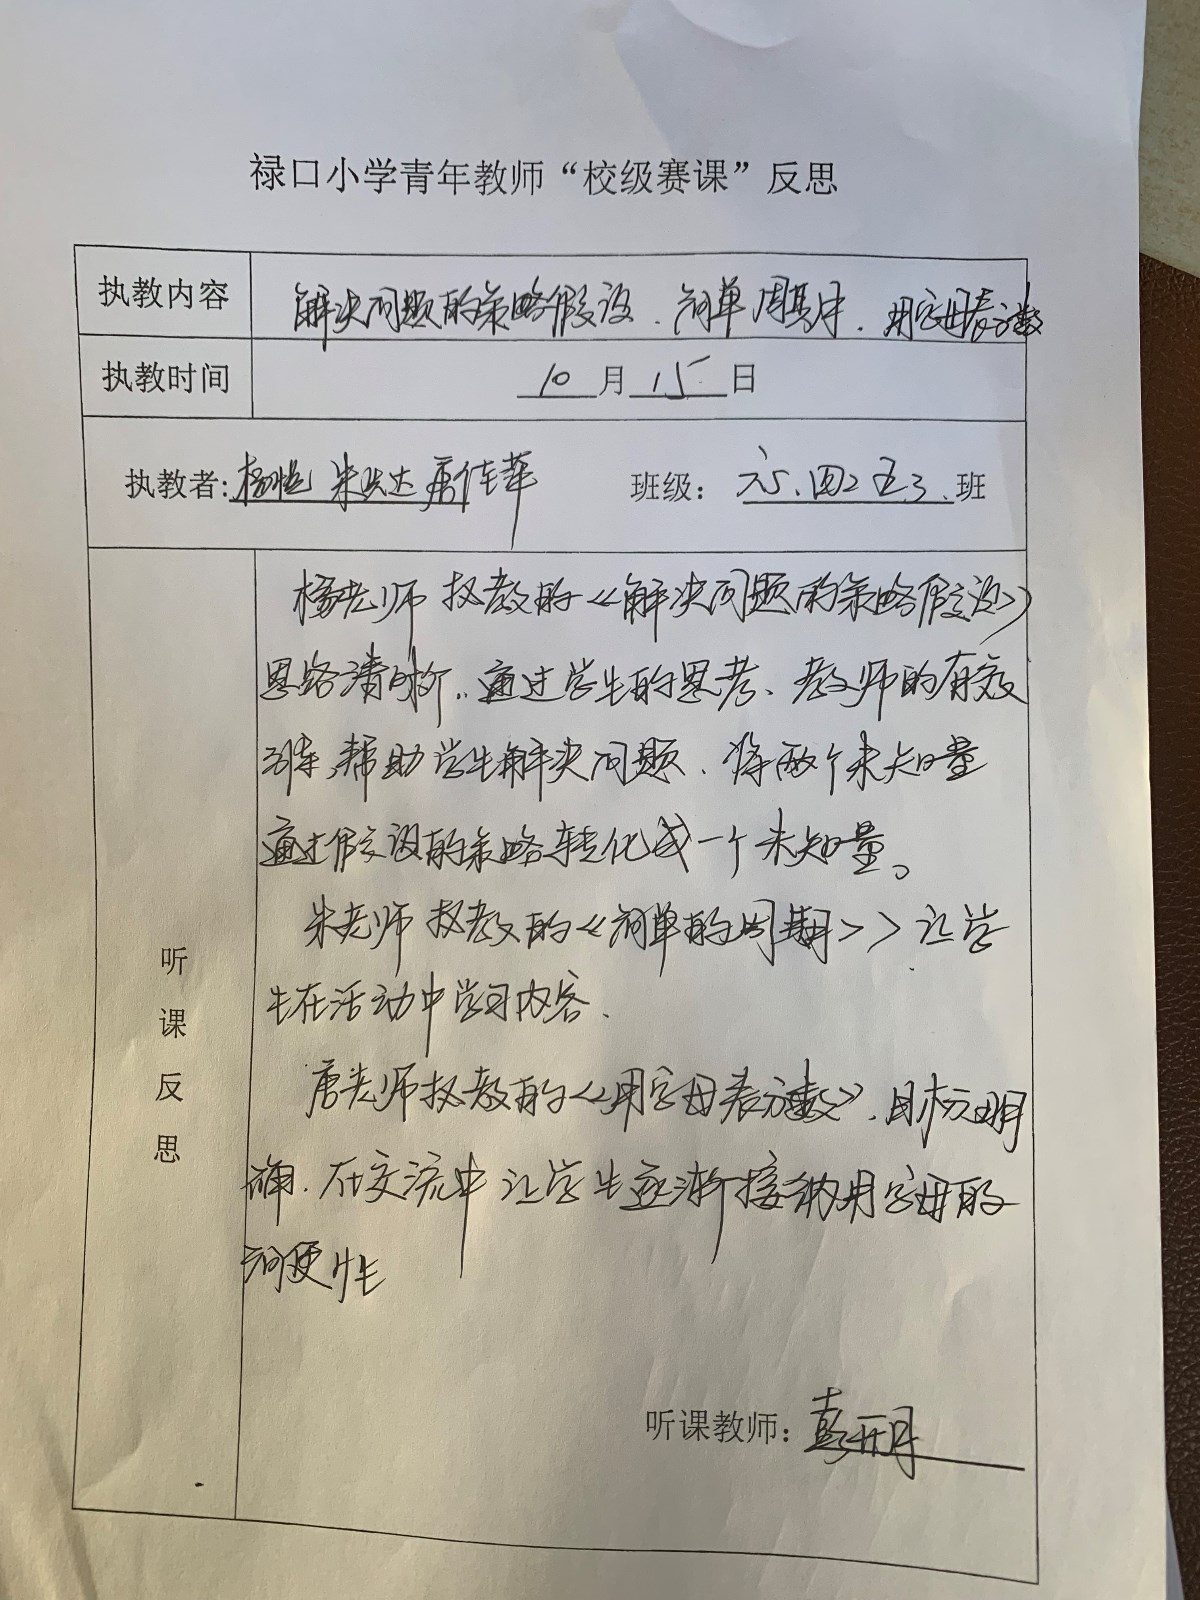 禄口小学青年教师“校级赛课”反思
执教内容
解决问题的策略假设、简单周期、用字母表示数
执教时间
10月15日
执教者: 杨 朱 达 唐佳苹
班级: 六5、四2 五3、班
听课反思
杨老师执教的《解决问题的策略假设》
思路清晰，通过学生的思考、教师的有效
引导，帮助学生解决问题、将两个未知量
通过假设的策略转化成一个未知量。
朱老师执教的《简单的周期》让学
生在活动中学习内容.
唐老师执教的《用字母表示数》，目标明
确.在交流中让学生逐渐接纳用字母的
简便性
听课教师: 彭